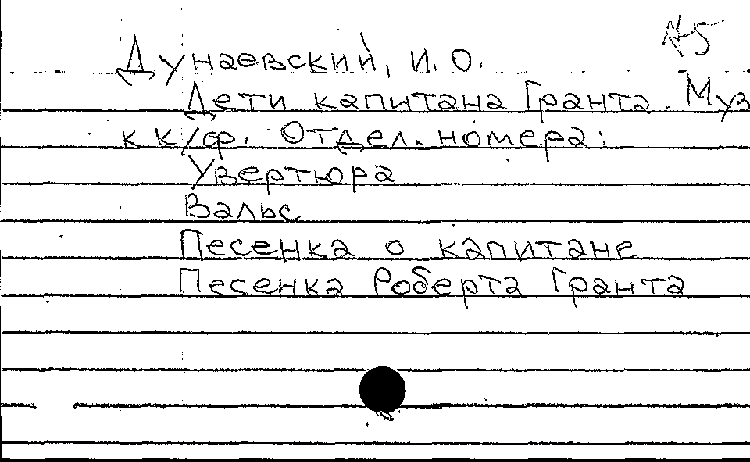 А5
Дунаевский, И. О.
Дети капитана Гранта. Муз
к к/ф. Отдел. номера:
Увертюра
Вальс
Песенка о капитане
Песенка Роберта Гранта